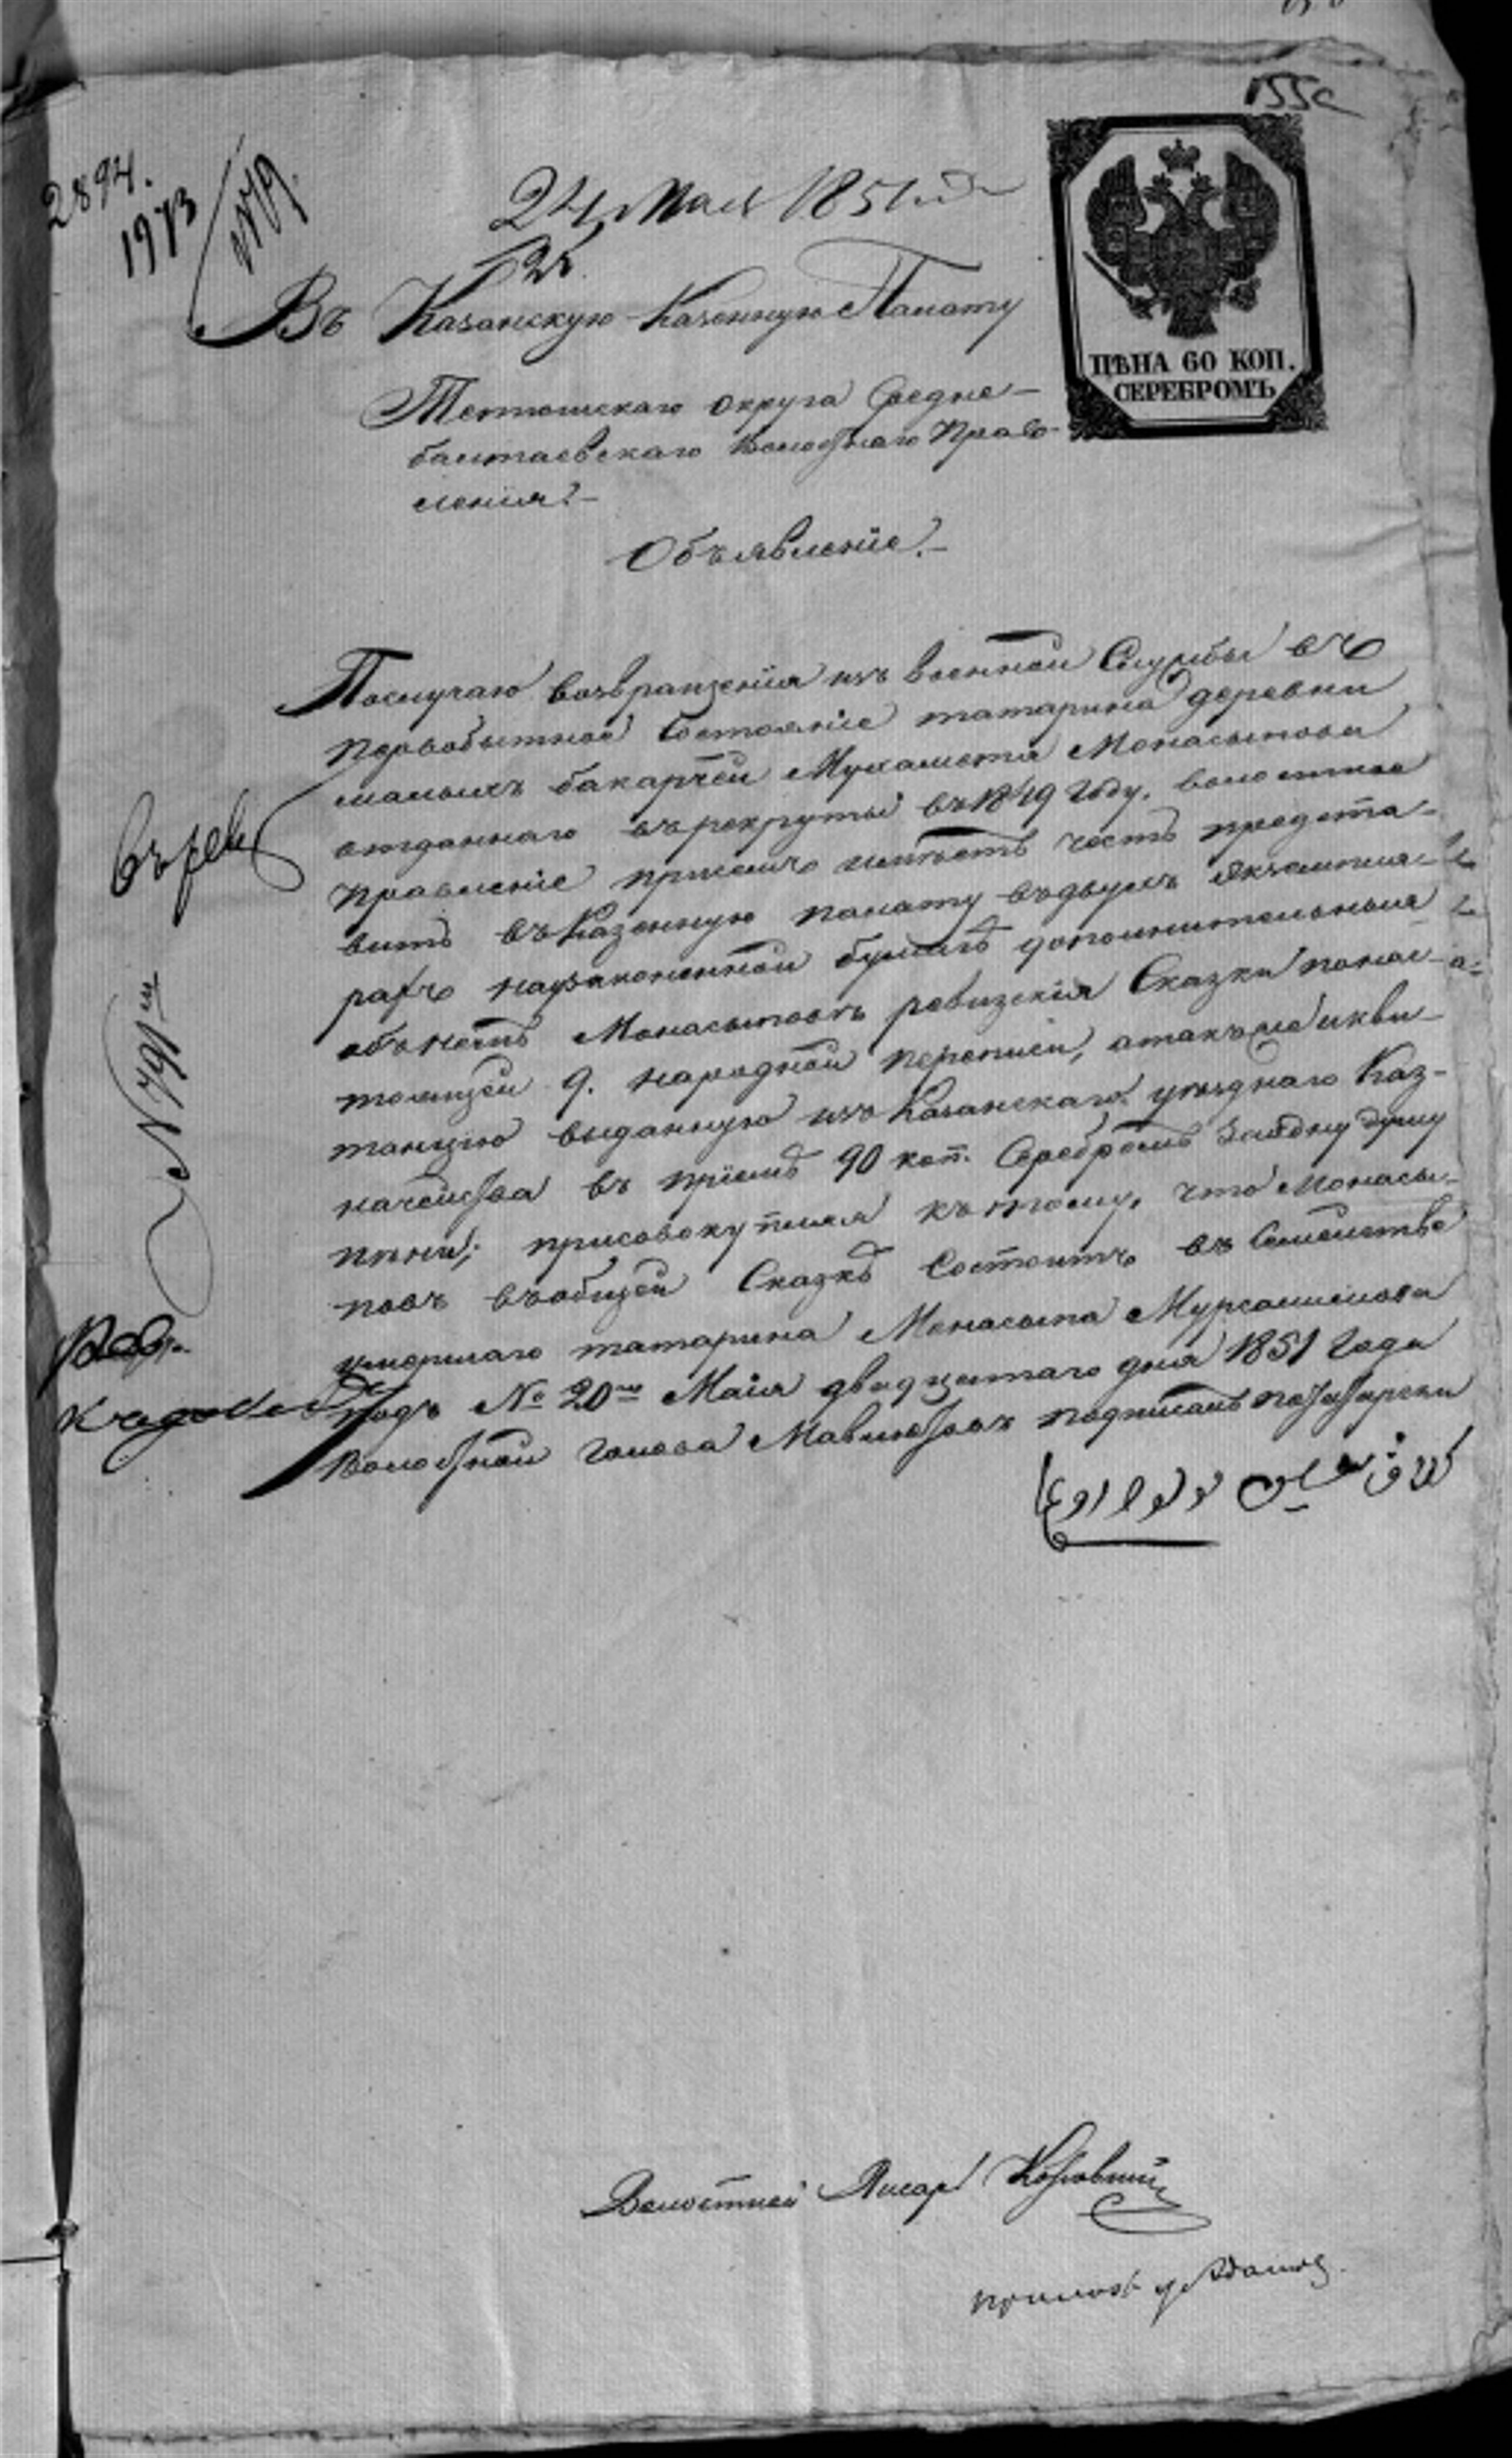 155
2894.
1973
24 Мая 1851 года
Въ Казанскую Казенную Палату
ЦѢНА 60 КОП.
СЕРЕБРОМЪ
Тетюшскаго округа Средне-
балтаевскаго Волостнаго Прав-
ленія.
Объявленіе.
Послучаю возвращенія изъ военной Службы въ
первобытное Состояніе татарина деревни
малыхъ бакарчей Мухаметя Монасыпова
отданнаго въ рекруты въ 1849 году. волостное
правленіе присемъ имѣетъ честь предста-
вить въ Казенную палату въ двухъ экземпля-
рахъ на узаконенной бумагѣ дополнительныя
объ немъ Монасыповѣ ревизскія Сказки по нас-
тоящей 9. народной переписи, а такъ же и кви-
танцію выданную изъ Казанскаго уѣзднаго Каз-
начейства въ пріемѣ 90 коп. Серебромъ за одну душу
пѣни; присовокупляя къ тому, что Монасы-
повъ въ общей Сказкѣ Состоитъ въ Семействѣ
умершаго татарина Монасыпа Мурсалимова
подъ № 20мъ Маія двадцатаго дня 1851 года
Волостной голова Мавлютовъ подписалъ по татарски
Волостной Писарь
№ 79